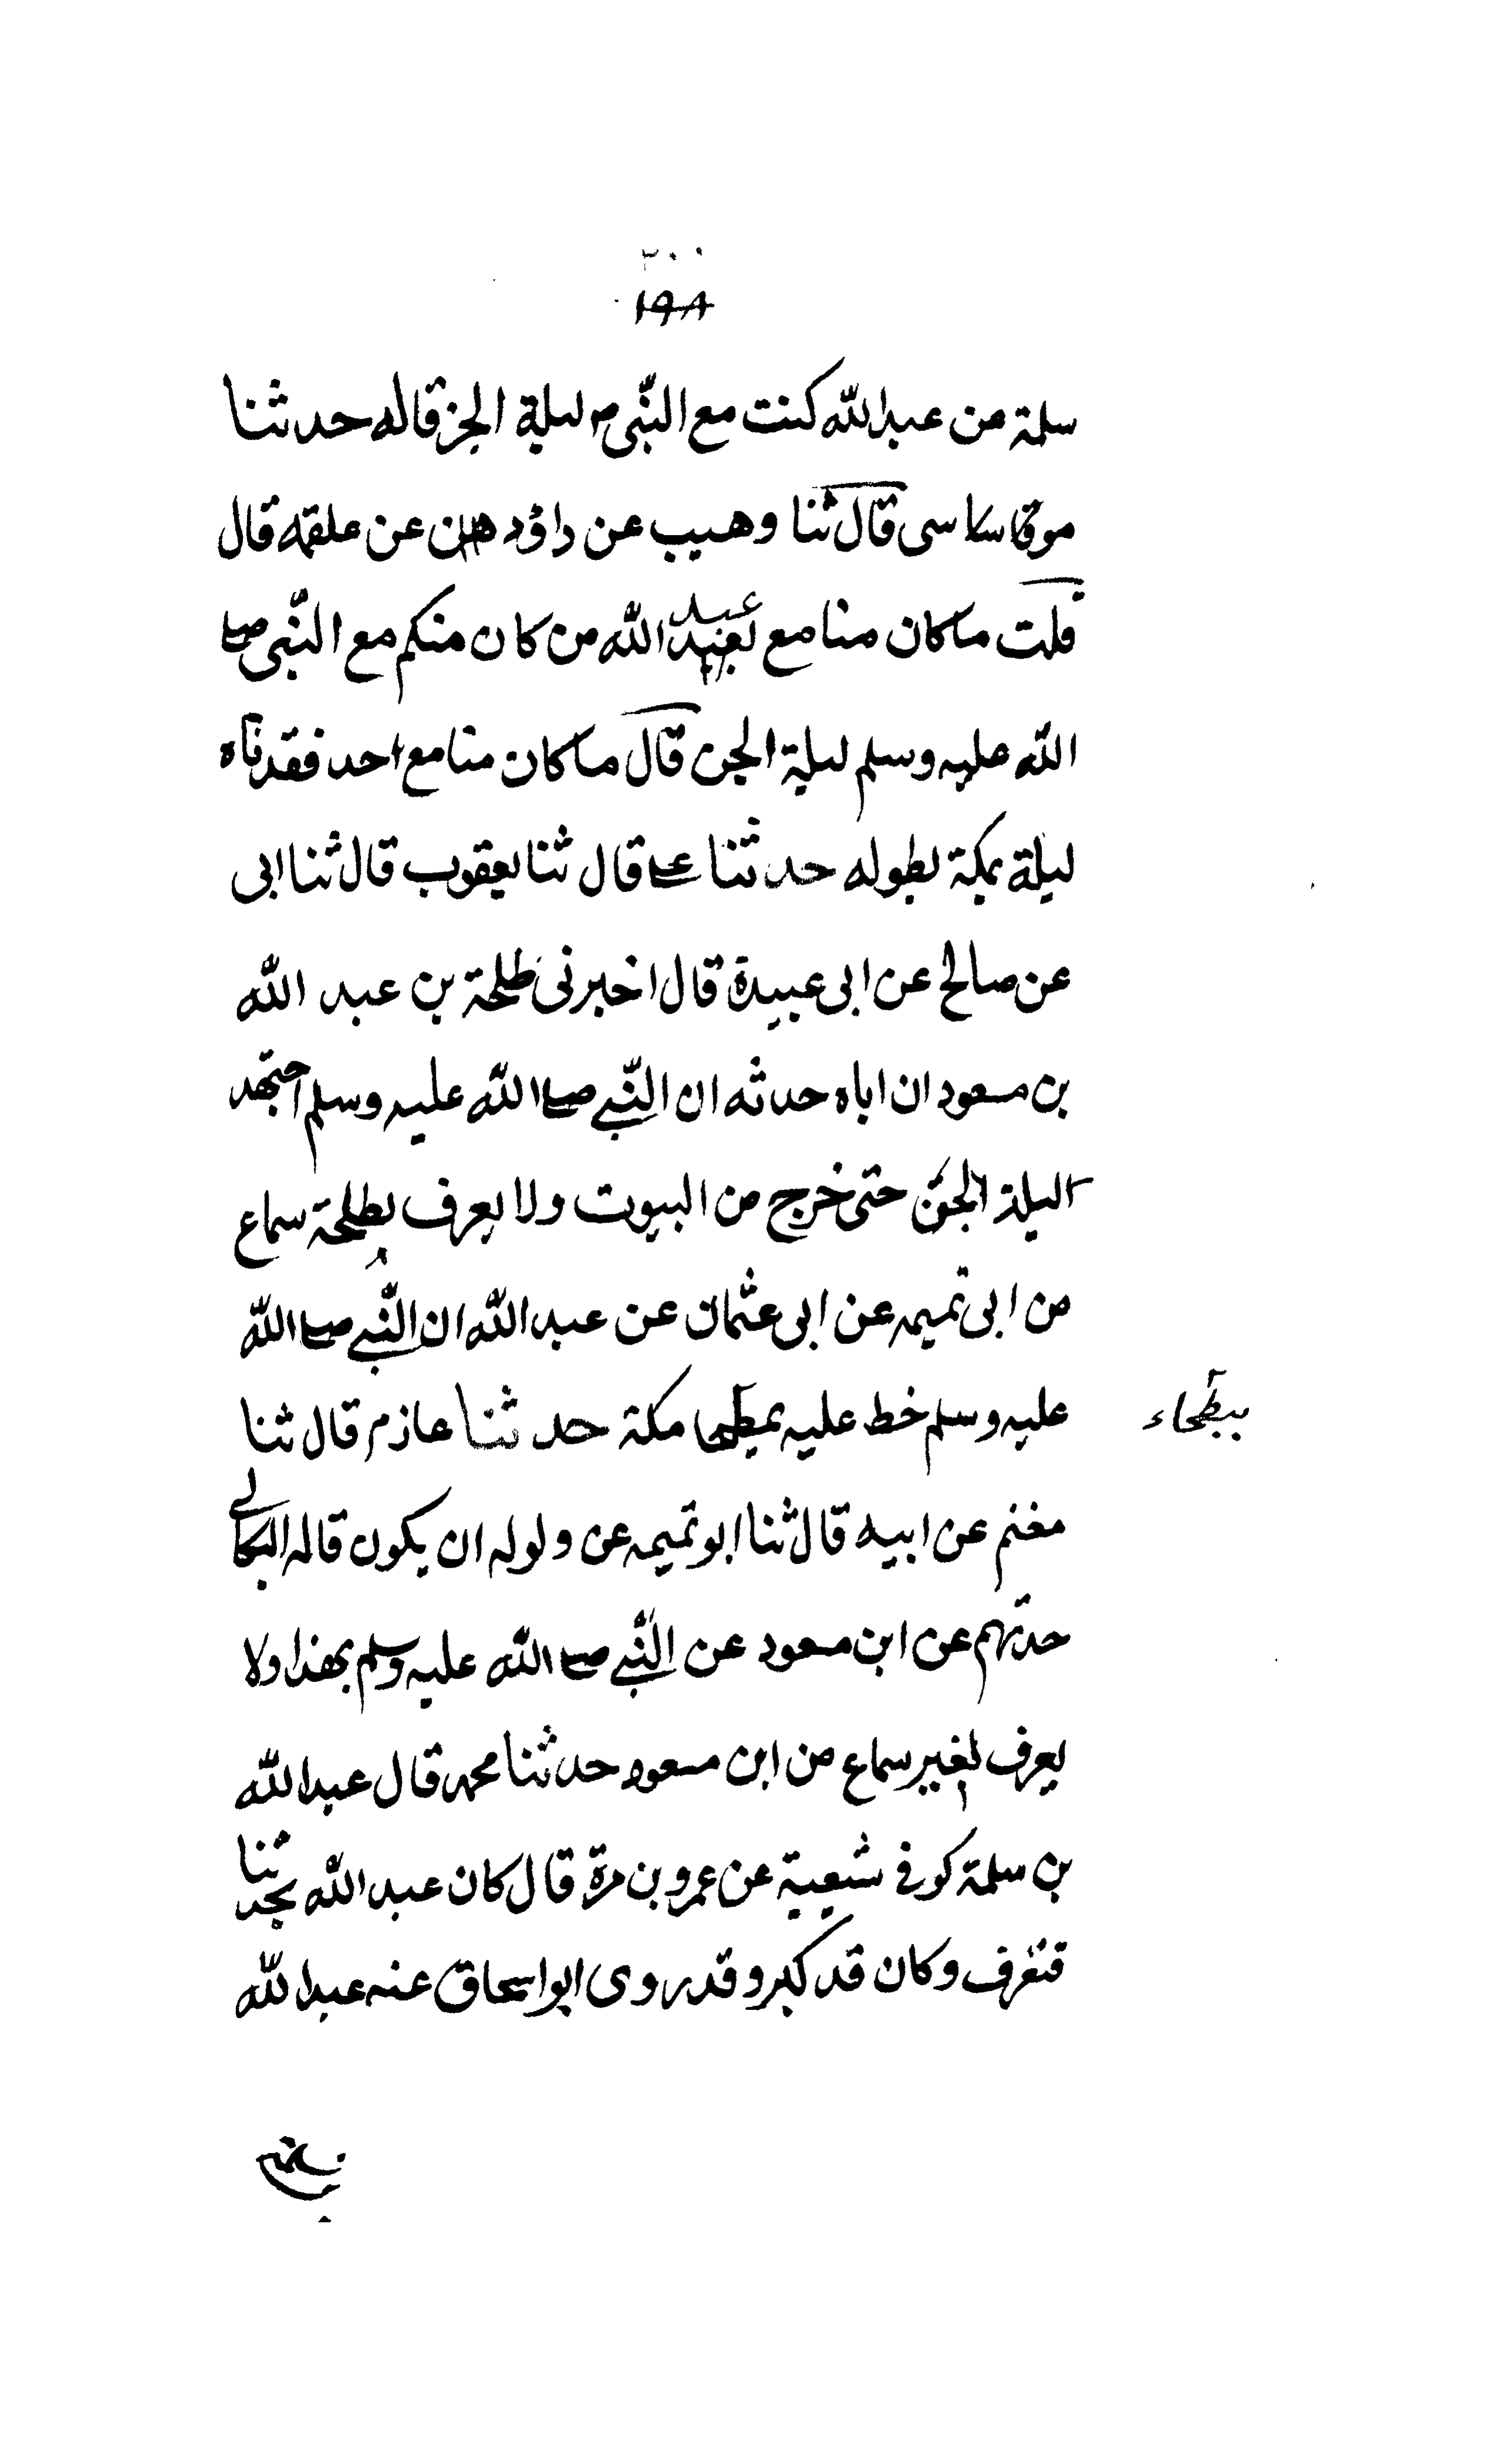 ١٩٨
سلمة من عبدالله كنت مع النبى م ليلة الجن قاله حدثنا
سى قال ثنا وهيب عن داؤد عن علقمه قال
قلت ماكان منا مع عبد الله من كان منكم مع النبى صلى
الله عليه وسلم ليلة الجن قال ماكان منا مع احد فقدناه
ليلة بمكة بطوله حدثنا على قال ثنا يعقوب قال ثنا ابى
عن صالح عن ابى عبيدة قال اخبرنى طلحة بن عبد الله
بن مسعود ان اباه حدثه ان النبي صلى الله عليه وسلم احتجهد
اليلة الجن حتى خرج من البيوت ولا يعرف لطلحة سماع
من ابى تميمه عن ابى عثمان عن عبدالله ان النبي صلى الله
عليه وسلم خط عليه مكة حدثنا عازم قال ثنا
ببطحاء
مغنم عن ابيه قال ثنا ابو تميمه عن ولوله ان يكون قاله البكالى
حدثهم عن ابن مسعود عن النبي صلى الله عليه وسلم بهذا ولا
يعرف لغير سماع من ابن مسعود حدثنا محمد قال عبدالله
بن سلمة كوفى شعبة عن عمرو بن مرة قال كان عبد الله يحدثنا
فتعرف وكان قد كبر وقد روى ابو اسحاق عنه عبدالله